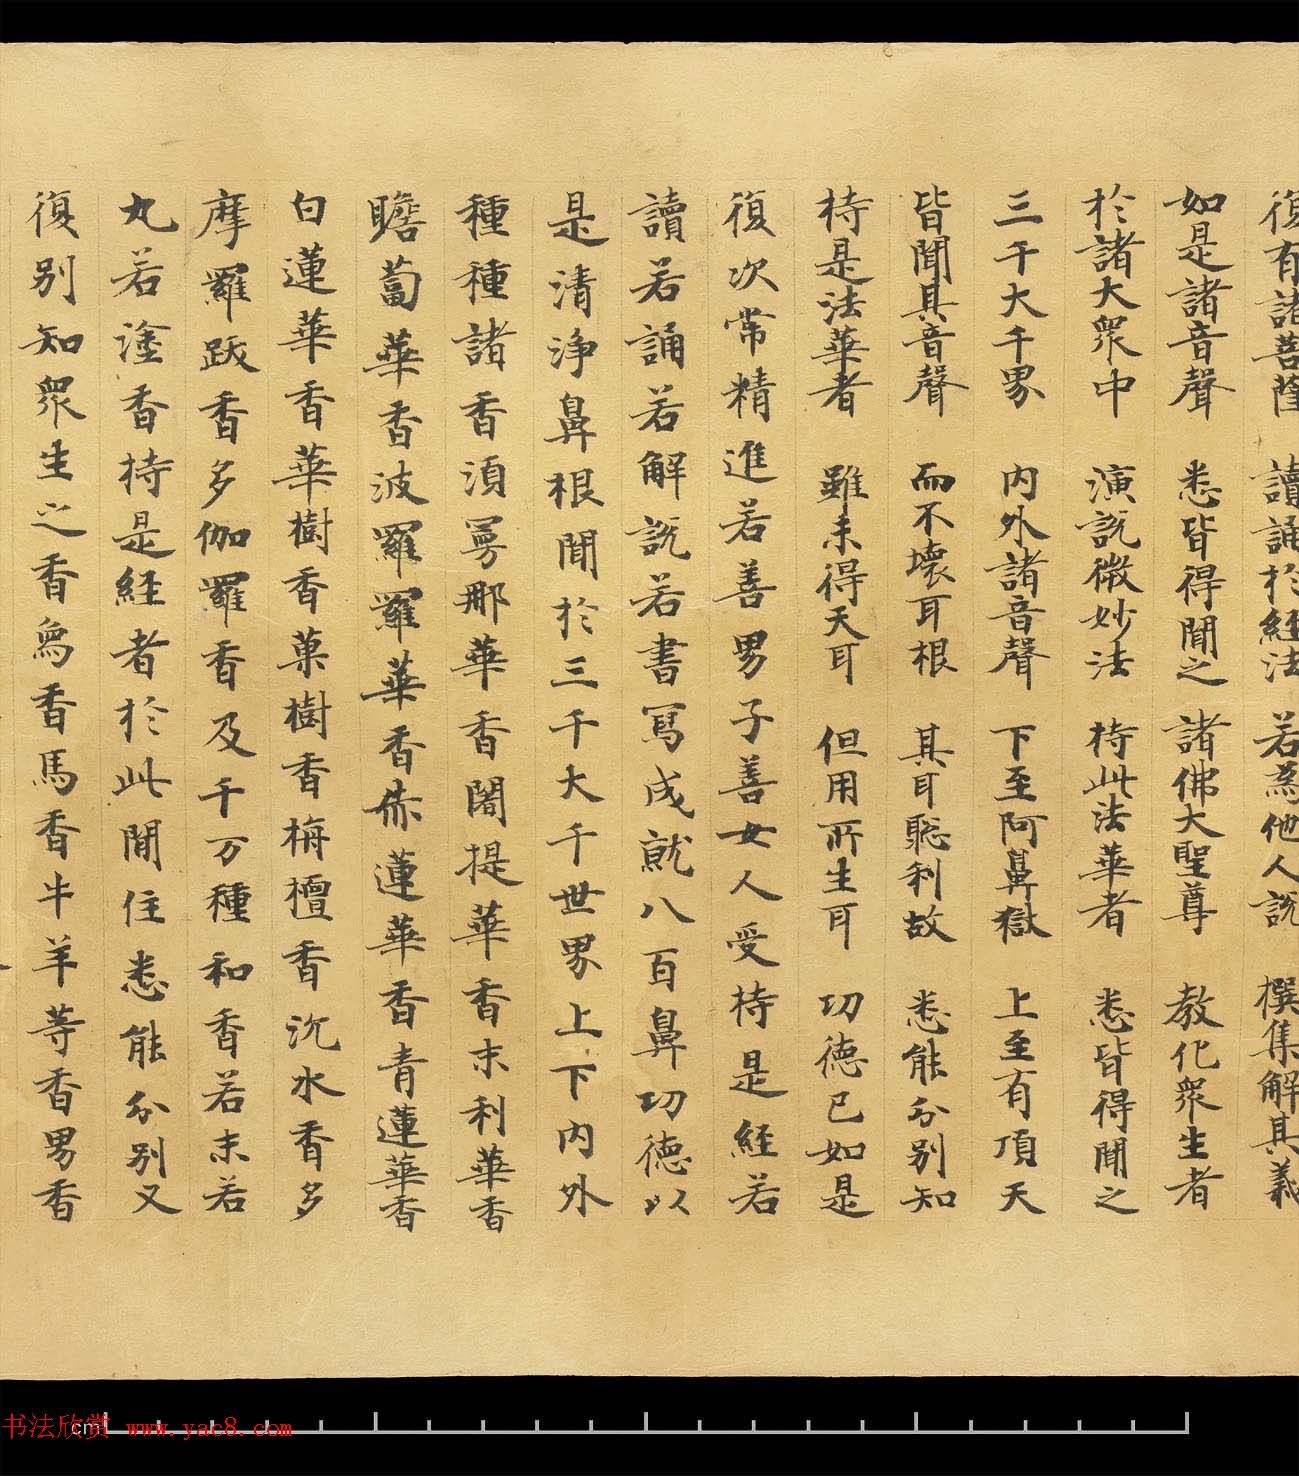 復有諸菩薩 讀誦於經法 若為他人說 撰集解其義
如是諸音聲 悉皆得聞之 諸佛大聖尊 教化眾生者
於諸大眾中 演說微妙法 持此法華者 悉皆得聞之
三千大千界 內外諸音聲 下至阿鼻獄 上至有頂天
皆聞其音聲 而不壞耳根 其耳聰利故 悉能分別知
持是法華者 雖未得天耳 但用所生耳 功德已如是
復次常精進若善男子善女人受持是經若
讀若誦若解說若書寫成就八百鼻功德以
是清淨鼻根聞於三千大千世界上下內外
種種諸香須曼那華香闍提華香末利華香
瞻蔔華香波羅羅華香赤蓮華香青蓮華香
白蓮華香華樹香菓樹香栴檀香沉水香多
摩羅跋香多伽羅香及千万種和香若末若
丸若塗香持是經者於此間住悉能分別又
復別知眾生之香為香馬香牛羊等香男香
cm
书法欣赏 www.yac8.com